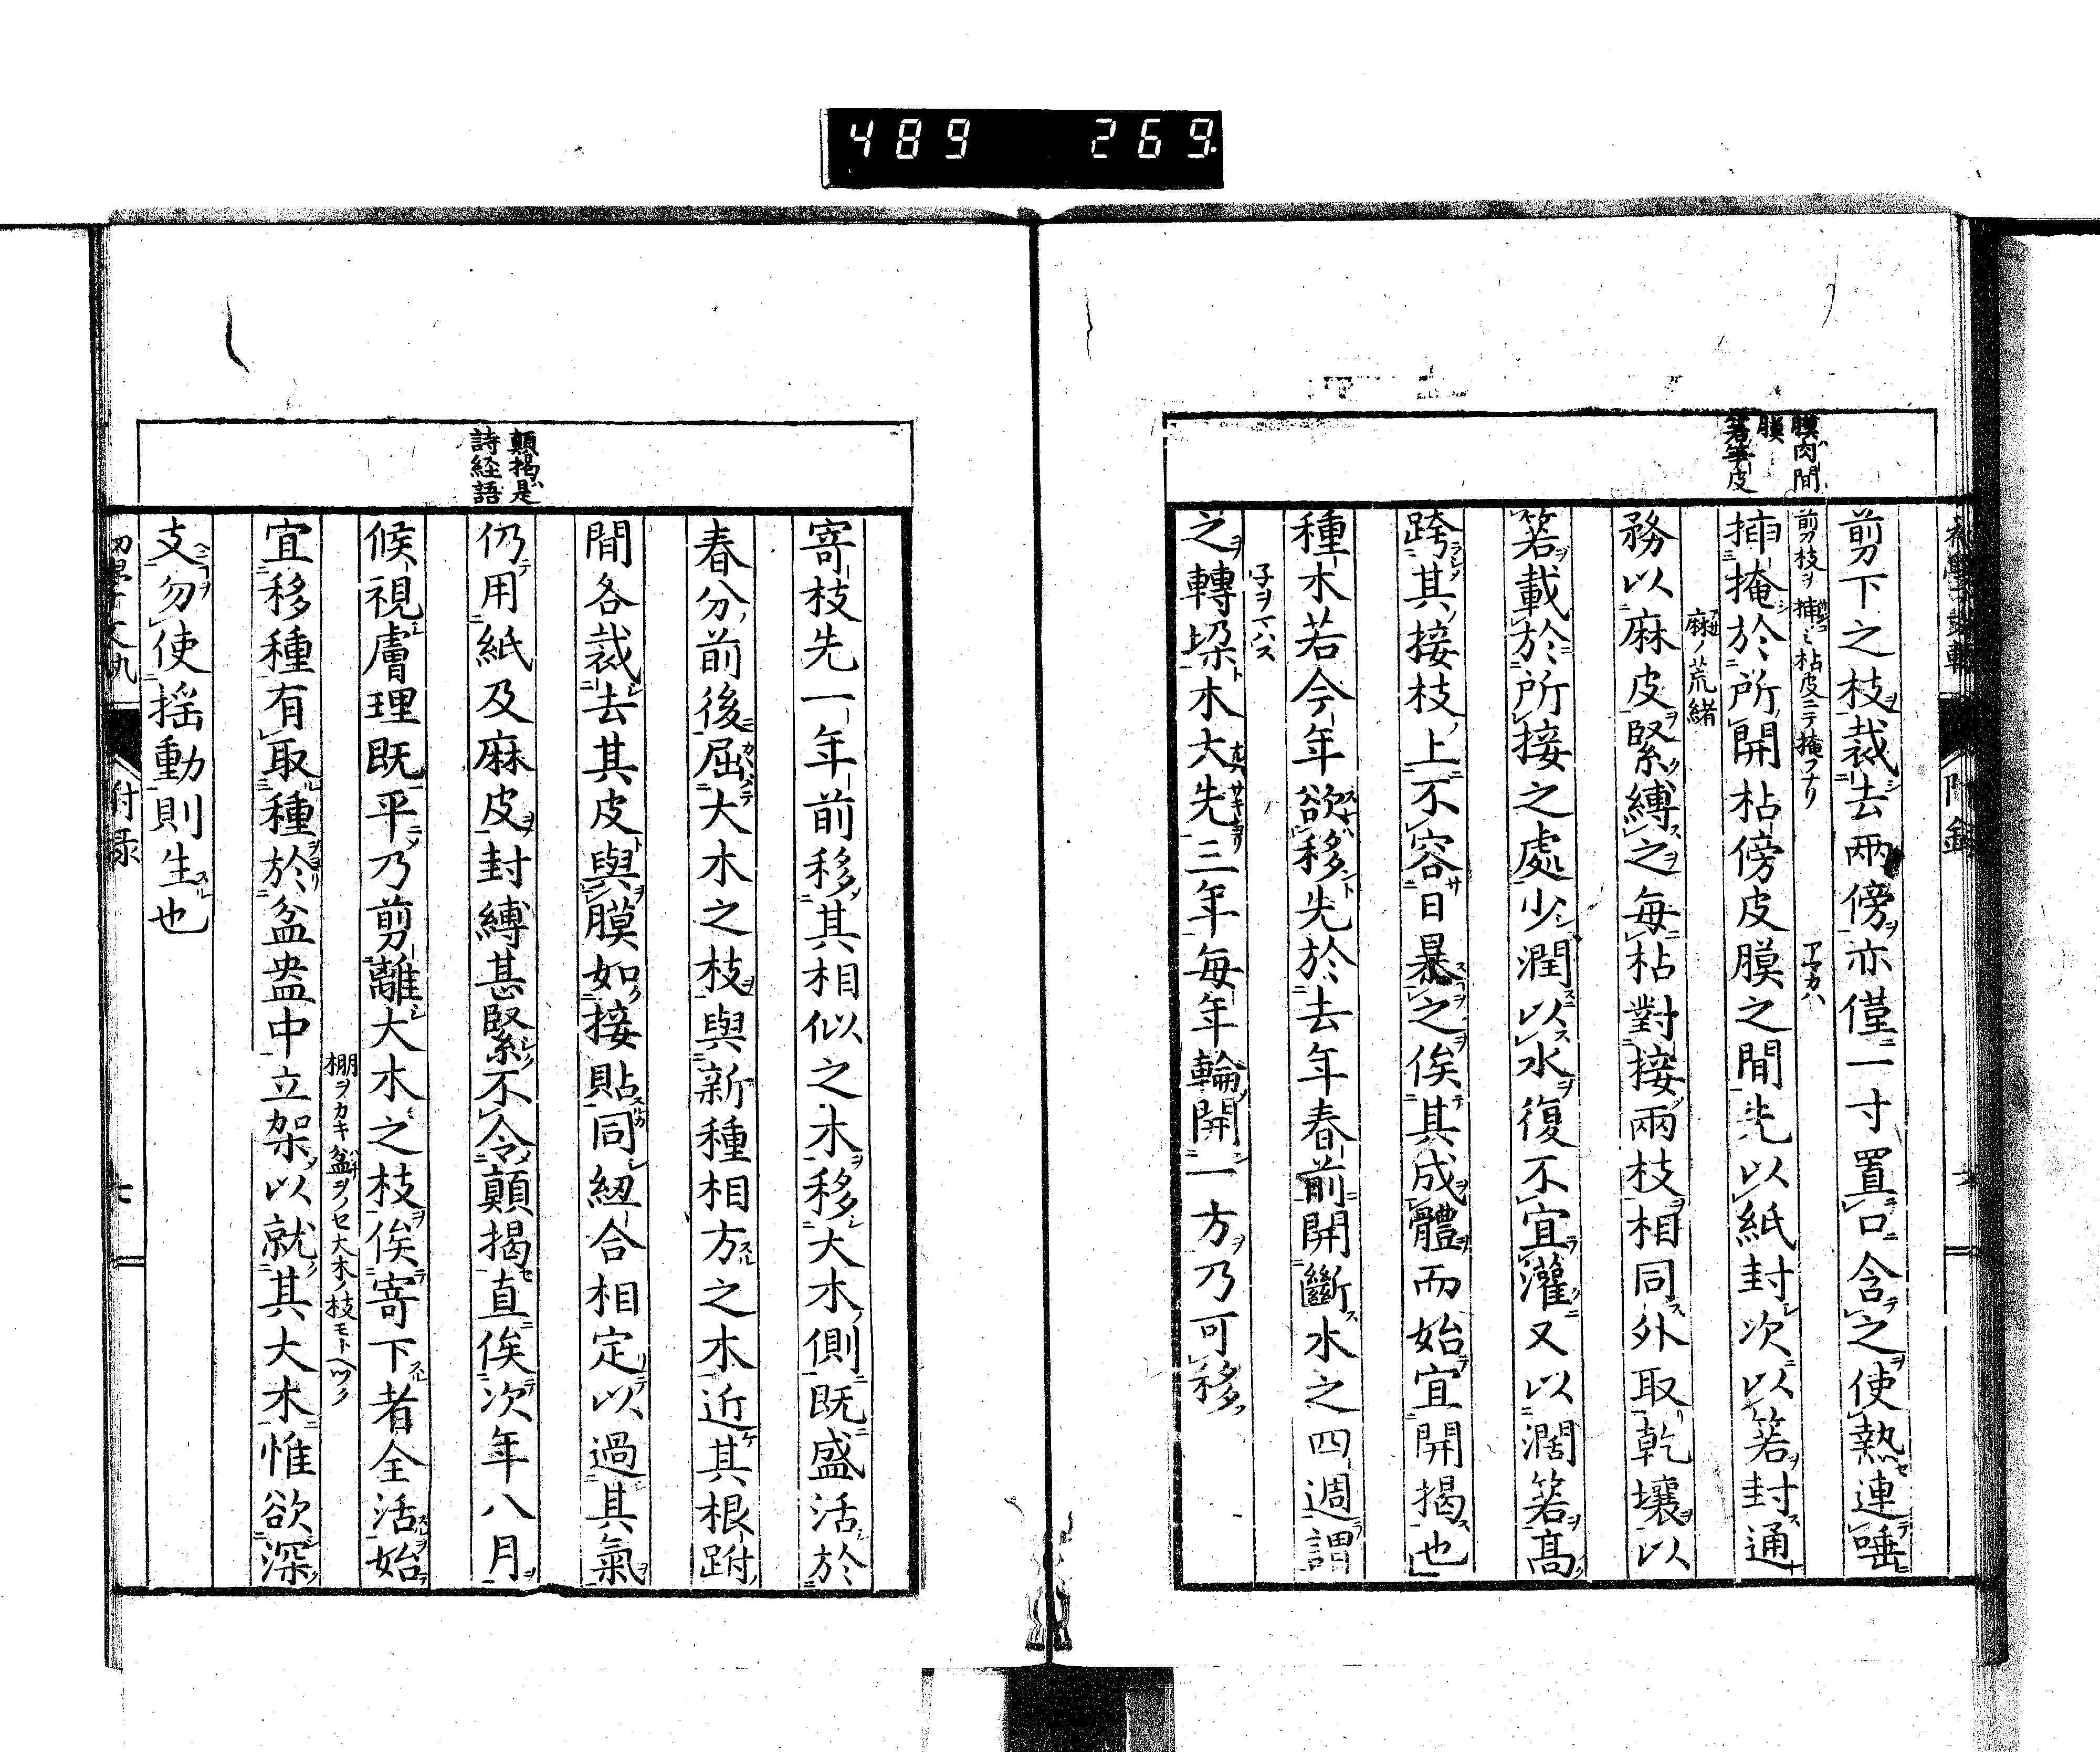 489 269
膜肉間
膜
箬筆皮
剪下之枝裁去兩傍亦僅一寸置口含之使熱連唾
剪枝ヲ挿ミ枮皮ニテ掩フナリ
アマカハ
挿掩於所開枮傍皮膜之間先以紙封次以箬封通
麻ノ荒緒
務以麻皮緊縛之每枮對接兩枝相同外取乾壤以
箬載於所接之處少潤以水復不宜灌又以濶箬高
跨其接枝上不容日暴之俟其成體而始宜開揭也
種木若今年欲移先於去年春前開斷木之四週謂
子ヲマハス
之轉垜木大先三年每年輪開一方乃可移
顛揭是
詩経語
寄枝先一年前移其相似之木移大木側既盛活於
春分前後屈大木之枝與新種相方之木近其根跗
間各裁去其皮與膜如接貼同紐合相定以過其氣
仍用紙及麻皮封縛甚緊不令顛揭直俟次年八月
候視膚理既平乃剪離大木之枝俟寄下者全活始
棚ヲカキ盆ヲノセ大木ノ枝モトヘツク
宜移種有取種於盆盎中立架以就其大木惟欲深
支勿使揺動則生也
附録
七